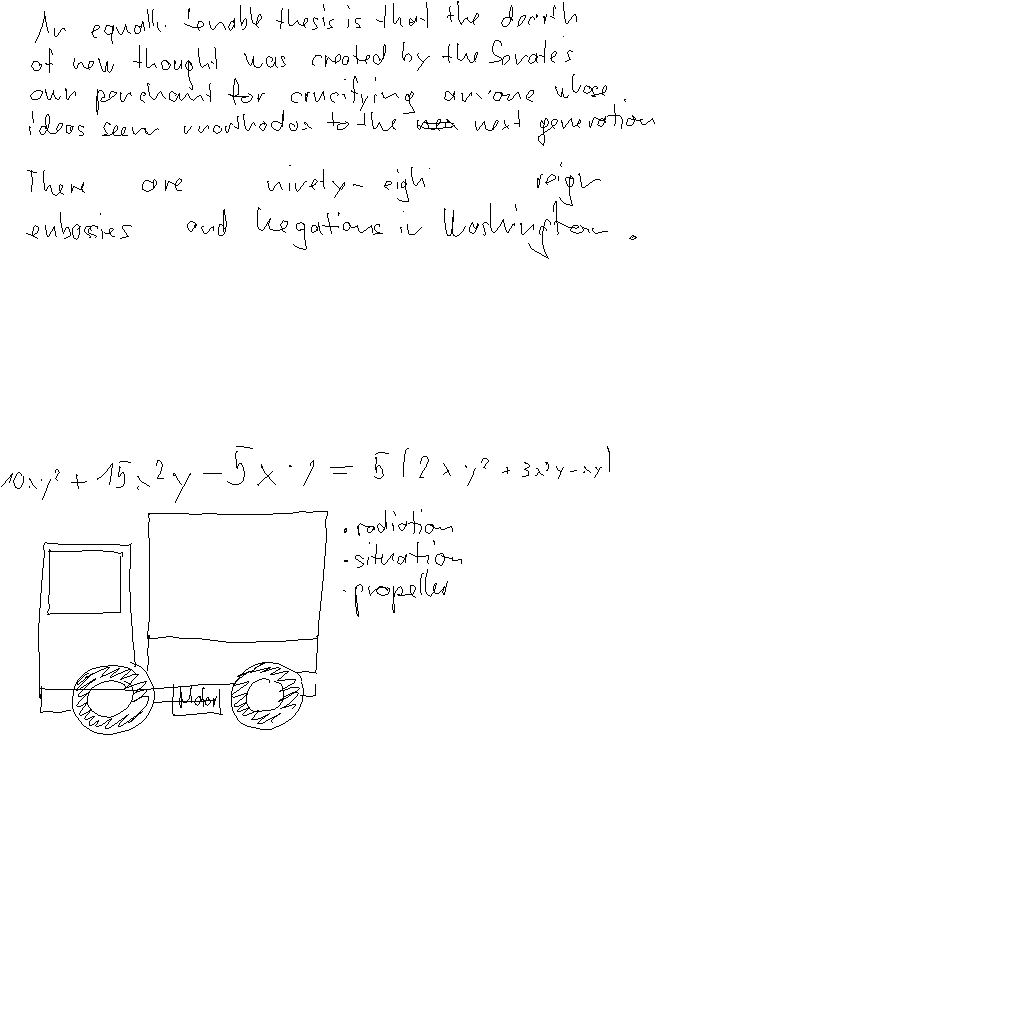 An equally tenable thesis is that the dearth
of new thought was created by the Senate's
own penchant for crucifying anyone whose
ideas seem unorthodox to the next generation
There are ninety-eigh reign
embassies and legations in Washington.
10x·y² + 15x²y - 5x·y = 5(2x·y² + 3x²y - xy)
· radiation
· situation
· propeller
Motor